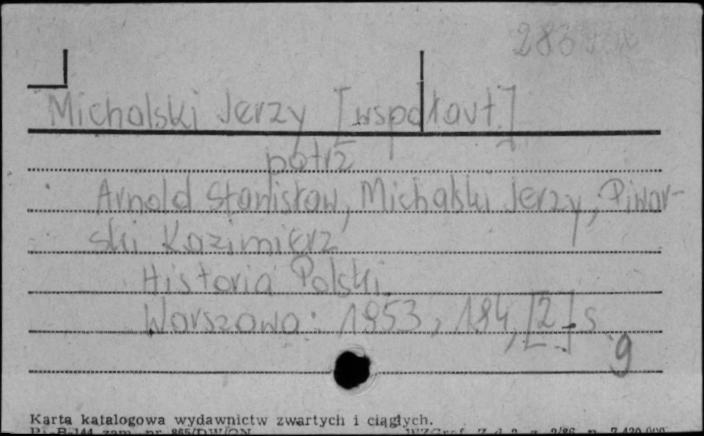 283
Michalski Jerzy [współaut.]
patrz
Arnold Stanisław, Michalski Jerzy, Piwar-
ski Kazimierz
Historia Polski.
Warszawa: 1953, 184, [2] s.
g
Karta katalogowa wydawnictw zwartych i ciągłych.